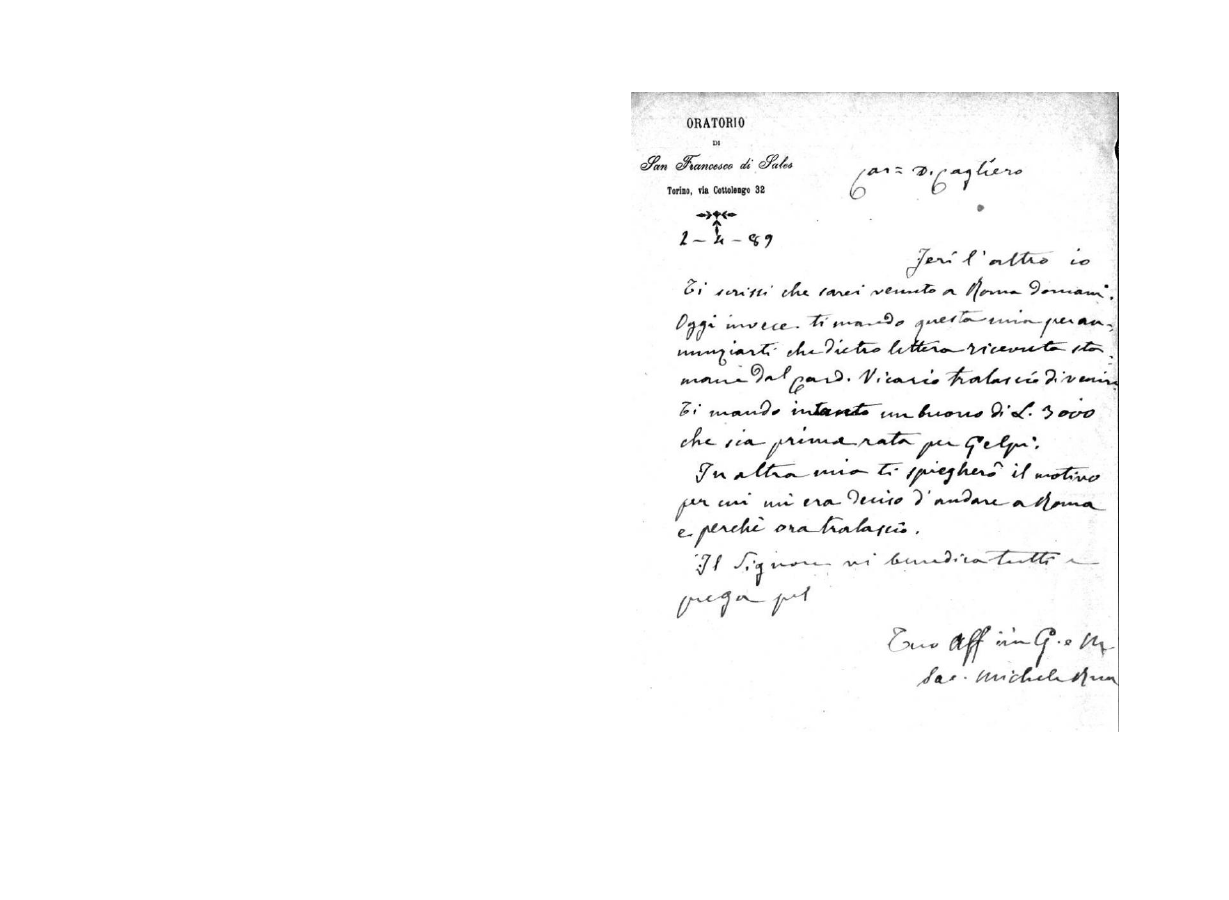 ORATORIO
DI
San Francesco di Sales
Torino, via Cottolengo 32
Car= D. Cagliero
2-4-89
Jeri l'altro io
Ti scrissi che sarei venuto a Roma domani.
Oggi invece ti mando questa mia per an-
nunziarti che dietro lettera ricevuta sta-
mane dal Card. Vicario tralascio di venire
Ti mando intanto un buono di L. 3000
che sia prima rata per Gelpi.
In altra mia ti spiegherò il motivo
per cui mi era deciso d'andare a Roma
e perchè ora tralascio.
Il Signore vi benedica tutti e
prega pel
Tuo Aff in G. e M
Sac. Michele Rua